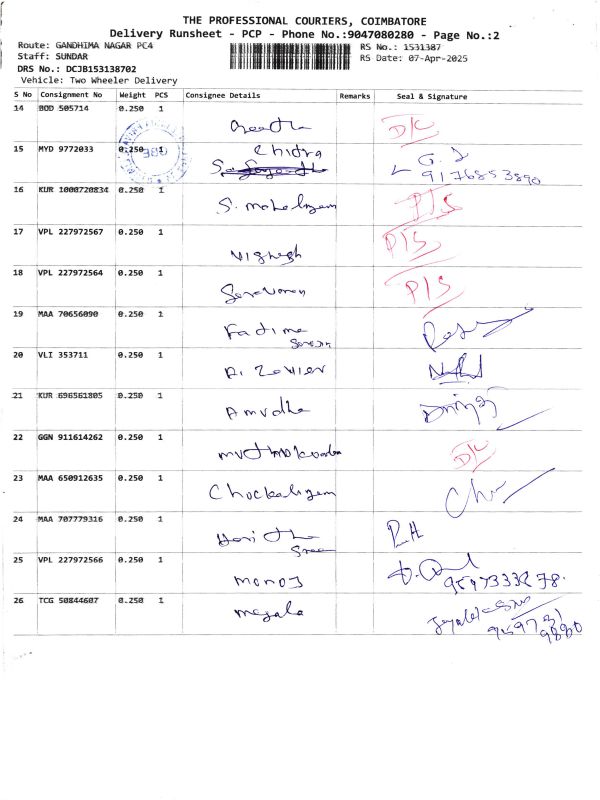 THE PROFESSIONAL COURIERS, COIMBATORE
Delivery Runsheet - PCP - Phone No.:9047080280 - Page No.:2
Route: GANDHIMA NAGAR PC4 RS No.: 1531387
Staff: SUNDAR RS Date: 07-Apr-2025
DRS No.: DCJB153138702
Vehicle: Two Wheeler Delivery
S No Consignment No Weight PCS Consignee Details Remarks Seal & Signature
14 BOD 505714 0.250 1 Geetha D/C
15 MYD 9772033 0.250 1 Chitra
9176853890
16 KUR 1000720834 0.250 1 S. mahalingam P/S
17 VPL 227972567 0.250 1 Vignesh P/S
18 VPL 227972564 0.250 1 Saravanan P/S
19 MAA 70656090 0.250 1 Fatima
20 VLI 353711 0.250 1 A. Zavier
21 KUR 696561805 0.250 1 Amudha
22 GGN 911614262 0.250 1 muthukumar D/C
23 MAA 650912635 0.250 1 Chockalingam
24 MAA 707779316 0.250 1 Haritha
Sree
25 VPL 227972566 0.250 1 manoj
26 TCG 50844607 0.250 1 megala